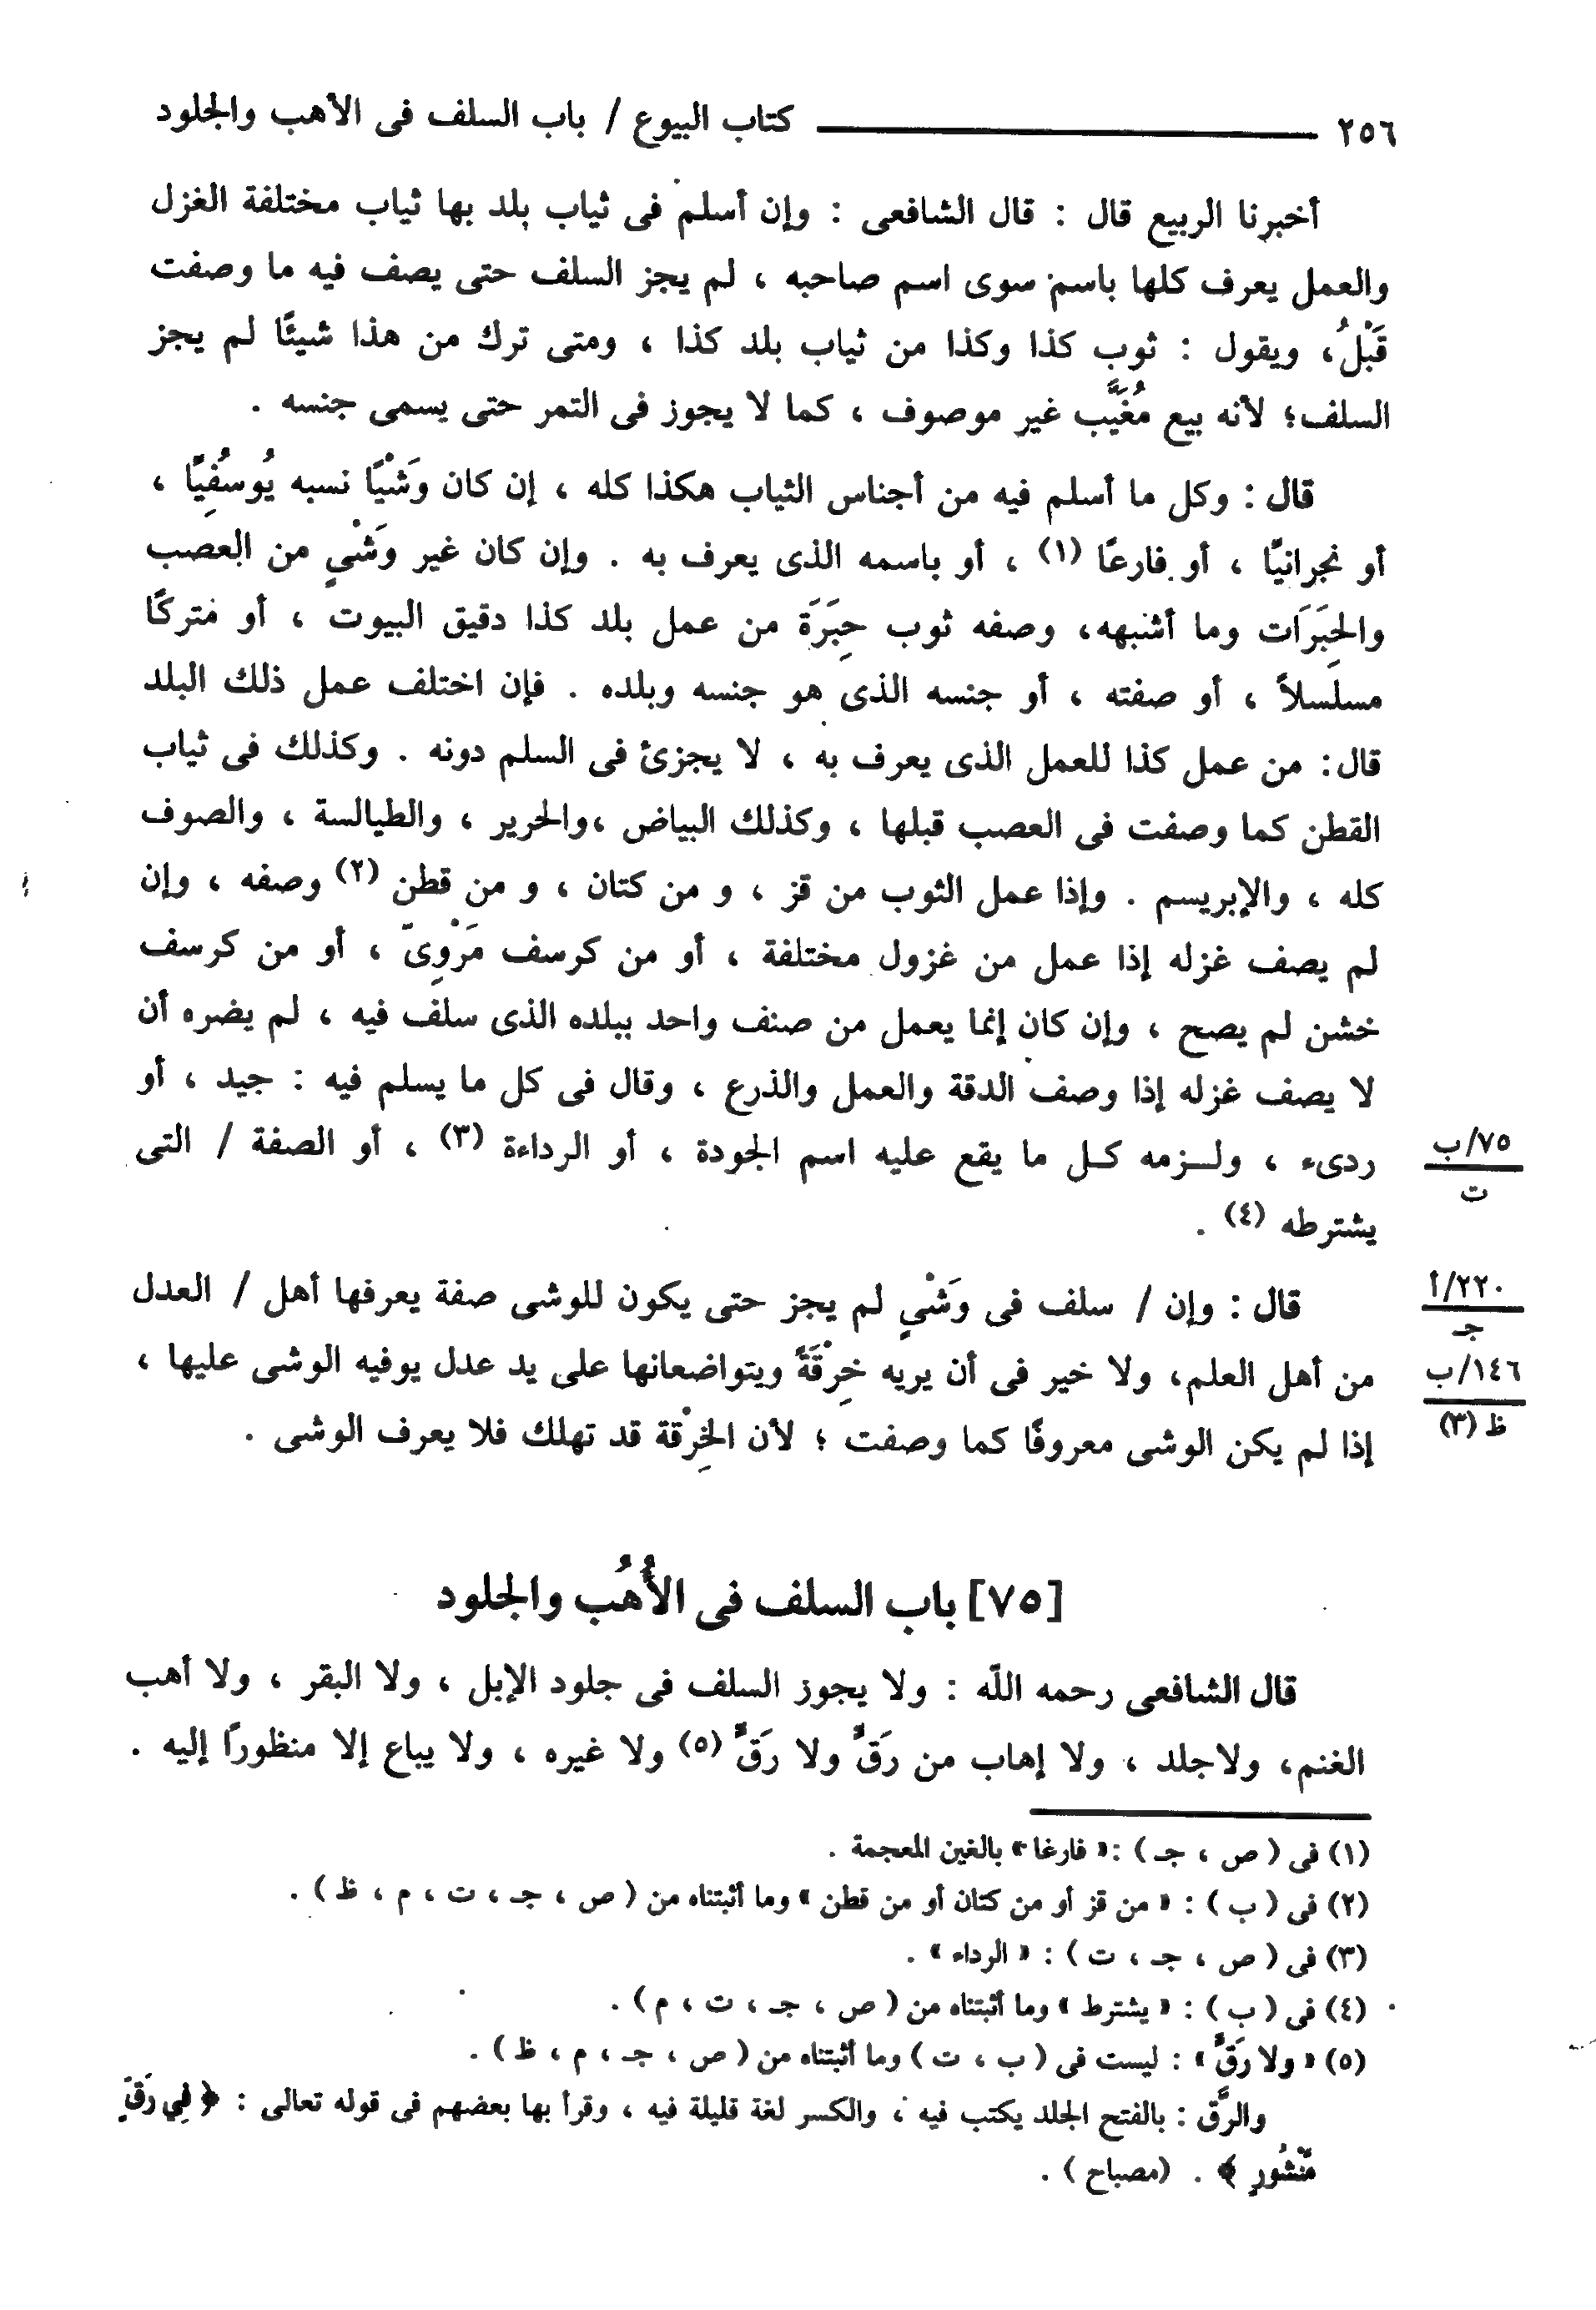 ٢٥٦ كتاب البيوع / باب السلف فى الأهب والجلود
أخبرنا الربيع قال : قال الشافعى : وإن أسلم فى ثياب بلد بها ثياب مختلفة الغزل
والعمل يعرف كلها باسم سوى اسم صاحبه ، لم يجز السلف حتى يصف فيه ما وصفت
قَبْلُ، ويقول : ثوب كذا وكذا من ثياب بلد كذا ، ومتى ترك من هذا شيئًا لم يجز
السلف؛ لأنه بيع مُغَيَّب غير موصوف ، كما لا يجوز فى التمر حتى يسمى جنسه .
قال : وكل ما أسلم فيه من أجناس الثياب هكذا كله ، إن كان وَشْيًا نسبه يُوسُفِيًا ،
أو نجرانيًا ، أو فارعًا (١) ، أو باسمه الذى يعرف به . وإن كان غير وَشْىٍ من العصب
والحِبَرَات وما أشبهه، وصفه ثوب حِبَرَة من عمل بلد كذا دقيق البيوت ، أو متركًا
مسلسلاً ، أو صفته ، أو جنسه الذى هو جنسه وبلده . فإن اختلف عمل ذلك البلد
قال : من عمل كذا للعمل الذى يعرف به ، لا يجزئ فى السلم دونه . وكذلك فى ثياب
القطن كما وصفت فى العصب قبلها ، وكذلك البياض ،والحرير ، والطيالسة ، والصوف
كله ، والإبريسم . وإذا عمل الثوب من قز ، و من كتان ، و من قطن (٢) وصفه ، وإن
لم يصف غزله إذا عمل من غزول مختلفة ، أو من كرسف مَرْوِىّ ، أو من كرسف
خشن لم يصح ، وإن كان إنما يعمل من صنف واحد ببلده الذى سلف فيه ، لم يضره أن
لا يصف غزله إذا وصف الدقة والعمل والذرع ، وقال فى كل ما يسلم فيه : جيد ، أو
ردىء ، ولـزمه كـل ما يقع عليه اسم الجودة ، أو الرداءة (٣) ، أو الصفة / التى
٧٥/ب
ت
يشترطه (٤) .
قال : وإن / سلف فى وَشْىٍ لم يجز حتى يكون للوشى صفة يعرفها أهل / العدل
٢٢٠/أ
جـ
من أهل العلم، ولا خير فى أن يريه خِرْقَةً ويتواضعانها على يد عدل يوفيه الوشى عليها ،
١٤٦/ب
ظ (٣)
إذا لم يكن الوشى معروفًا كما وصفت ؛ لأن الخِرْقة قد تهلك فلا يعرف الوشى .
[٧٥] باب السلف فى الأُهُب والجلود
قال الشافعى رحمه اللّه : ولا يجوز السلف فى جلود الإبل ، ولا البقر ، ولا أهب
الغنم، ولاجلد ، ولا إهاب من رَقٍّ ولا رَقٍّ (٥) ولا غيره ، ولا يباع إلا منظورًا إليه .
(١) فى ( ص ، جـ ) :« فارغا » بالغين المعجمة .
(٢) فى ( ب ) : « من قز أو من كتان أو من قطن » وما أثبتناه من ( ص ، جـ ، ت ، م ، ظ ) .
(٣) فى ( ص ، جـ ، ت ) : « الرداء » .
(٤) فى ( ب ) : « يشترط » وما أثبتناه من ( ص ، جـ ، ت ، م ) .
(٥) « ولا رَقٍّ » : ليست فى ( ب ، ت ) وما أثبتناه من ( ص ، جـ ، م ، ظ ) .
والرَّق : بالفتح الجلد يكتب فيه ، والكسر لغة قليلة فيه ، وقرأ بها بعضهم فى قوله تعالى : ﴿ فِي رَقٍّ
مَّنشُورٍ ﴾ . (مصباح ) .